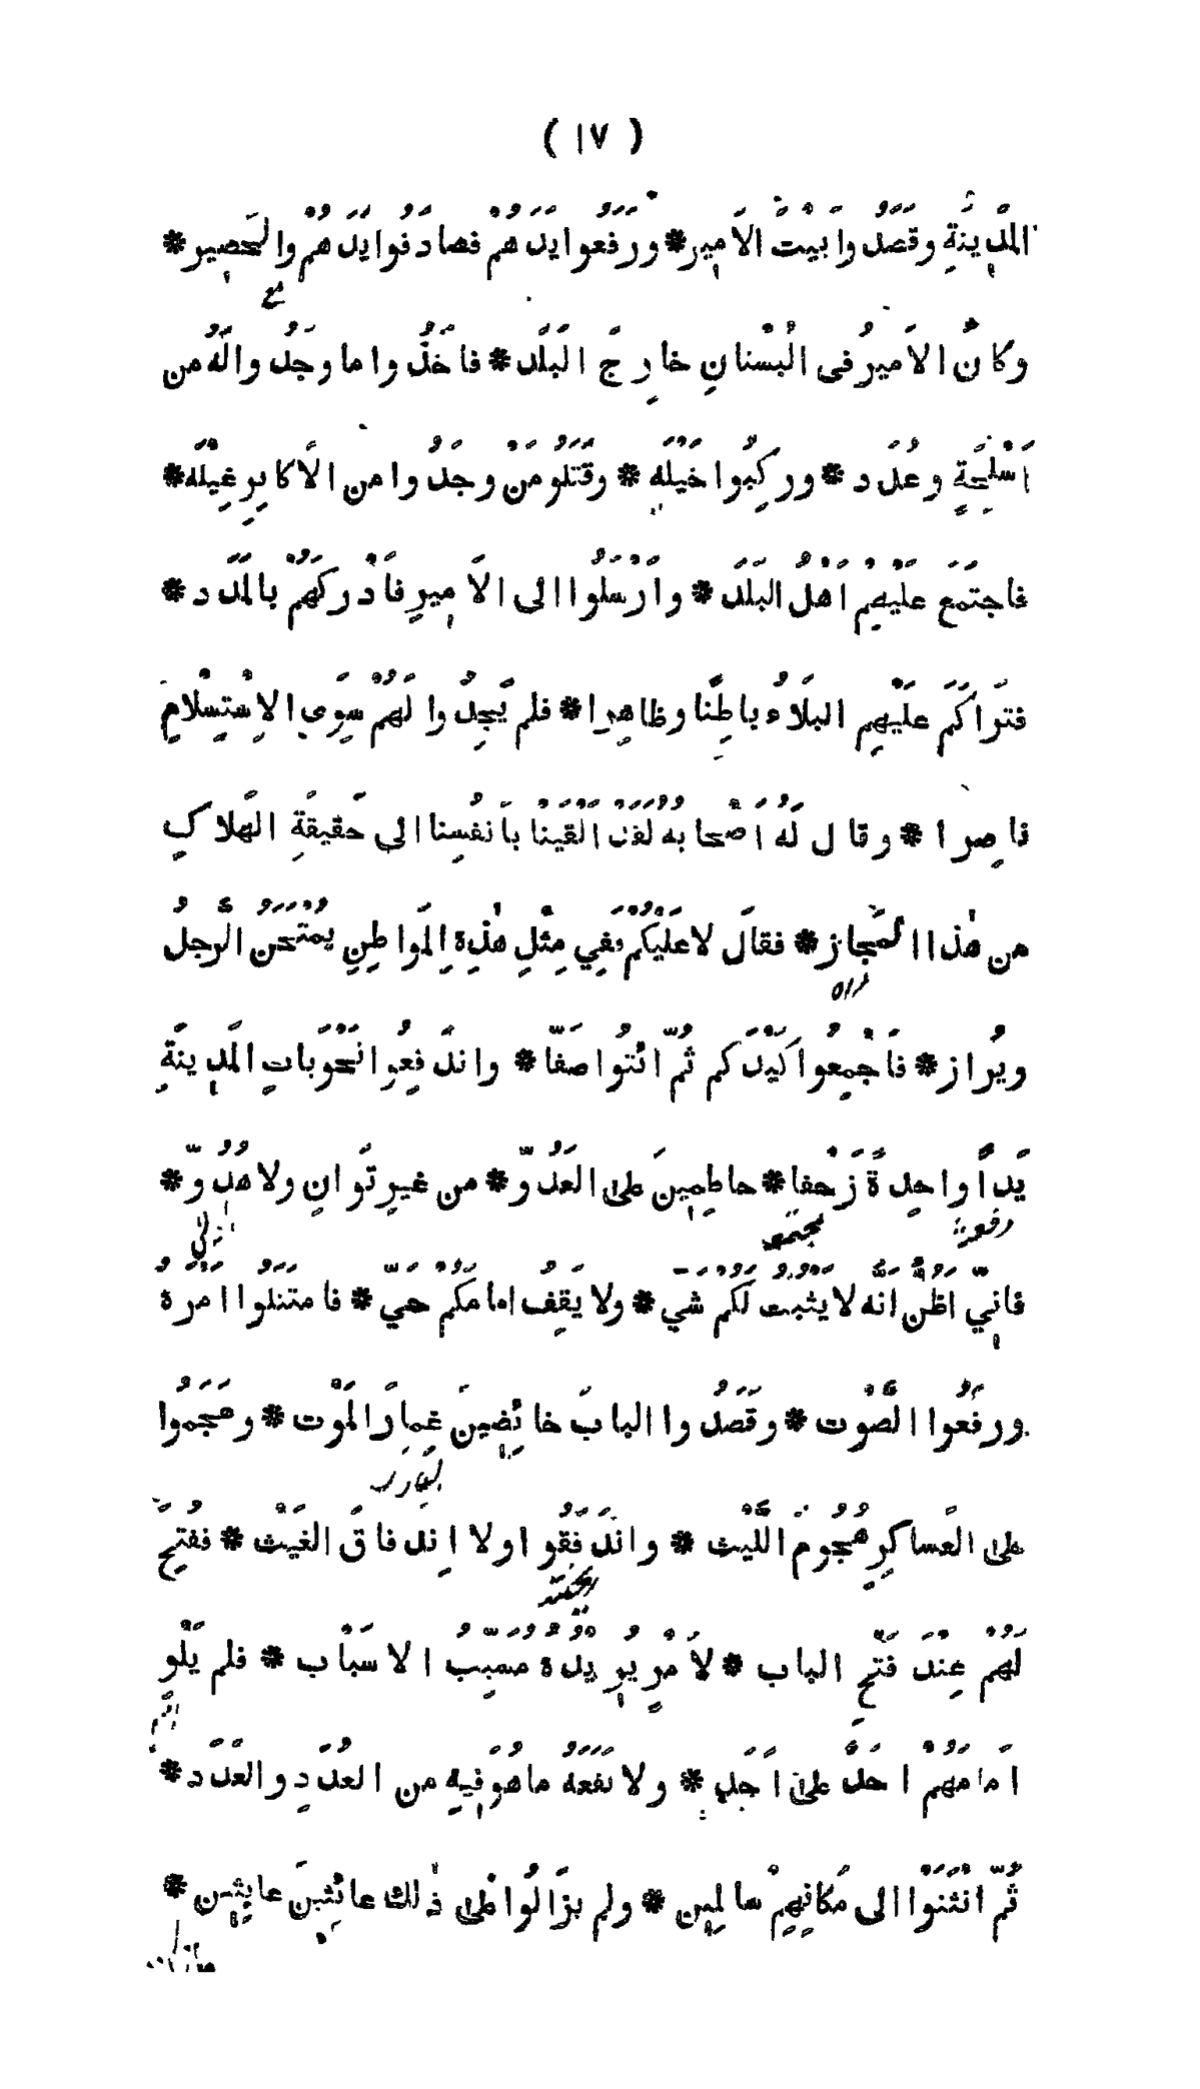 ( ١٧ )
المَدِينَةِ وقَصَدُوا بَيْتَ الاَمِير * ورَفَعوا يَدَهُمْ فصادَفُوا يَدَهُمْ والحَصِير *
وكانَ الاَميرُ فى الْبُسْتانِ خارِجَ البَلَد * فاَخَذُوا ما وجَدُوا لَهُ من
اَسْلِحَةٍ وعُدَد * ورَكِبُوا خَيْلَه * وقَتَلُو مَنْ وجَدُوا من الاَكابِرِ غِيْلَه *
فاجتَمَع عَلَيْهِمْ اَهْلُ البَلَد * واَرْسَلُوا الى الاَمِيرِ فَاَدْرَكَهُمْ بالمَدَد *
فتَراكَمَ عَلَيْهِم البَلاَءُ باطِنًا وظاهِرا * فلم يَجِدُوا لَهُمْ سِوَى الاِسْتِسْلامِ
ناصِرا * وقال لَهُ اَصْحابه لقد اَلْقَيْنا بِاَنفُسِنا الى حَقيقَةِ الهَلاكِ
من هٰذا المَجاز * فقالَ لا عَلَيْكُمْ ففِي مِثْلِ هٰذِهِ المَواطِنِ يُمْتَحَنُ الرَّجلُ
ويُراز * فَاَجْمِعُوا كَيْدَكم ثُمَّ ائْتُوا صَفّا * واندَفِعُوا نَحْوَ بابِ المَدِينَةِ
يَداً واحِدةً زَحْفا * حاطِمِينَ على العَدُوّ * من غيرِ تَوانٍ ولا هُدُوّ *
رفعون
مجتمعه
فانّي اظُن انه لا يثبت لَكم شي * ولا يَقِفُ امامَكُم حَيّ * فامتثلوا امره
ورفَعُوا الصَّوْت * وقَصَدُوا البابَ خائِضِينَ غِمارَ المَوْت * وهَجَموا
على العَساكِرِ هُجُومَ اللَّيْث * واندَفَقُوا ولا اِندفاقَ الغَيْث * ففُتِحَ
لَهُم عِندَ فَتْحِ الباب * لاَمْرٍ يُرِيدهُ مسبِّبُ الاسْباب * فلم يَلْوِ
اَمامَهُمْ احَدٌ على اَحَد * ولا نَفَعهُ ما هُوَ فيهِ من العُدَدِ والعَدَد *
ثُمَّ انْثَنَوْا الى مَكانِهِمْ سالِمِين * ولم يزَالُوا على ذٰلك عائِثِينَ عابِثِين *